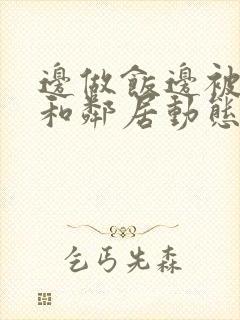 邊做飯邊被
和鄰居動態
乞丐先森